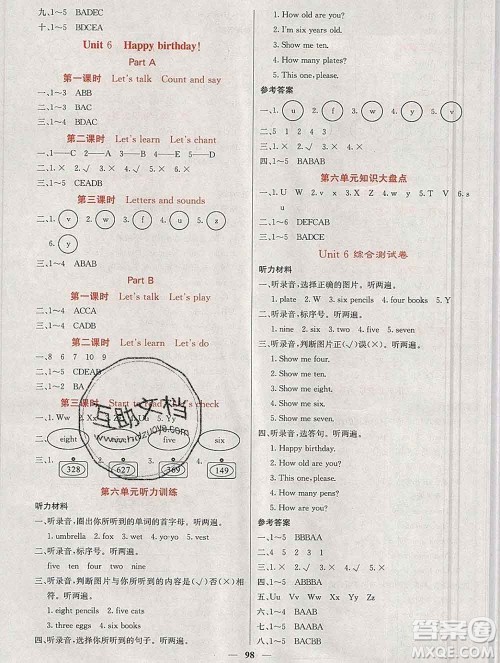 九、1~5 BADEC
十、1~5 BDCEA
Unit 6 Happy birthday!
Part A
第一课时 Let's talk Count and say
一、1~3 ABB
二、1~3 BAC
三、1~4 BDAC
第二课时 Let's learn Let's chant
一、1——C 2——A 3——D 4——B
二、1.× 2.√ 3.× 4.√
三、1~5 CEADB
第三课时 Letters and sounds
一、1. v 2. w 3. y 4. u
三、1~4 ABAB
Part B
第一课时 Let's talk Let's play
一、1~4 ACCA
二、1~4 CADB
第二课时 Let's learn Let's do
一、8 6 7 10 9
二、1~5 CDEAB
三、1~2 BA
第三课时 Start to read Let's check
一、1. Vv 2. Xx
二、 eight five six
328 627 369 149
第六单元听力训练
听力材料
一、听录音,圈出你所听到的单词的首字母。听两遍。
1. umbrella 2. fox 3. wet 4. violin
二、听录音,标序号。听两遍。
five ten four nine eight
三、听录音,判断图片与所听到的内容是(√)否(×)相
符。听两遍。
1. eight pencils 2. five cats
3. three eggs 4. six books
四、听录音,选择你所听到的句子。听两遍。
1. How old are you?
2. I'm six years old.
3. Show me ten.
4. How many plates?
5. This one, please.
参考答案
一、1. u 2. f 3. w 4. v
三、1.× 2.√ 3.× 4.√
四、1~5 BABAB
第六单元知识大盘点
一、U W
u
二、1~6 DEFCAB
三、1~5 BADCE
Unit 6 综合测试卷
听力材料
一、听录音,选择正确的图片。听两遍。
1. plate 2. W 3. six pencils 4. four books 5. v
二、听录音,标序号。听两遍。
1. nine 2. six 3. two 4. five 5. seven
三、听录音,判断图片正(√)误(×)。听两遍。
1. Show me four.
2. Show me ten.
3. Show me eight.
4. Show me six.
5. Show me one.
四、听录音,选答句。听两遍。
1. Happy birthday!
2. How old are you?
3. This one, please.
4. How many pens?
5. How old are you?
参考答案
一、1~5 BBBAA
二、3 5 2 1 4
三、1.√ 2.× 3.√ 4.× 5.×
四、1~5 ABBBA
五、Uu Vv Ww Xx Yy
六、1~5 BAABA
七、1~5 BBAAB
八、1~5 BACAB
98
互助文档
www.hdzuoye.com
作业精灵
MXQE.COM